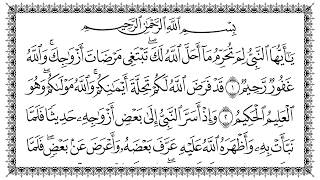 بِسْمِ اللَّهِ الرَّحْمَٰنِ الرَّحِيمِ
يَا أَيُّهَا النَّبِيُّ لِمَ تُحَرِّمُ مَا أَحَلَّ اللَّهُ لَكَ تَبْتَغِي مَرْضَاتَ أَزْوَاجِكَ وَاللَّهُ
غَفُورٌ رَّحِيمٌ ١ قَدْ فَرَضَ اللَّهُ لَكُمْ تَحِلَّةَ أَيْمَانِكُمْ وَاللَّهُ مَوْلَاكُمْ وَهُوَ
الْعَلِيمُ الْحَكِيمُ ٢ وَإِذْ أَسَرَّ النَّبِيُّ إِلَىٰ بَعْضِ أَزْوَاجِهِ حَدِيثًا فَلَمَّا
نَبَّأَتْ بِهِ وَأَظْهَرَهُ اللَّهُ عَلَيْهِ عَرَّفَ بَعْضَهُ وَأَعْرَضَ عَن بَعْضٍ فَلَمَّا